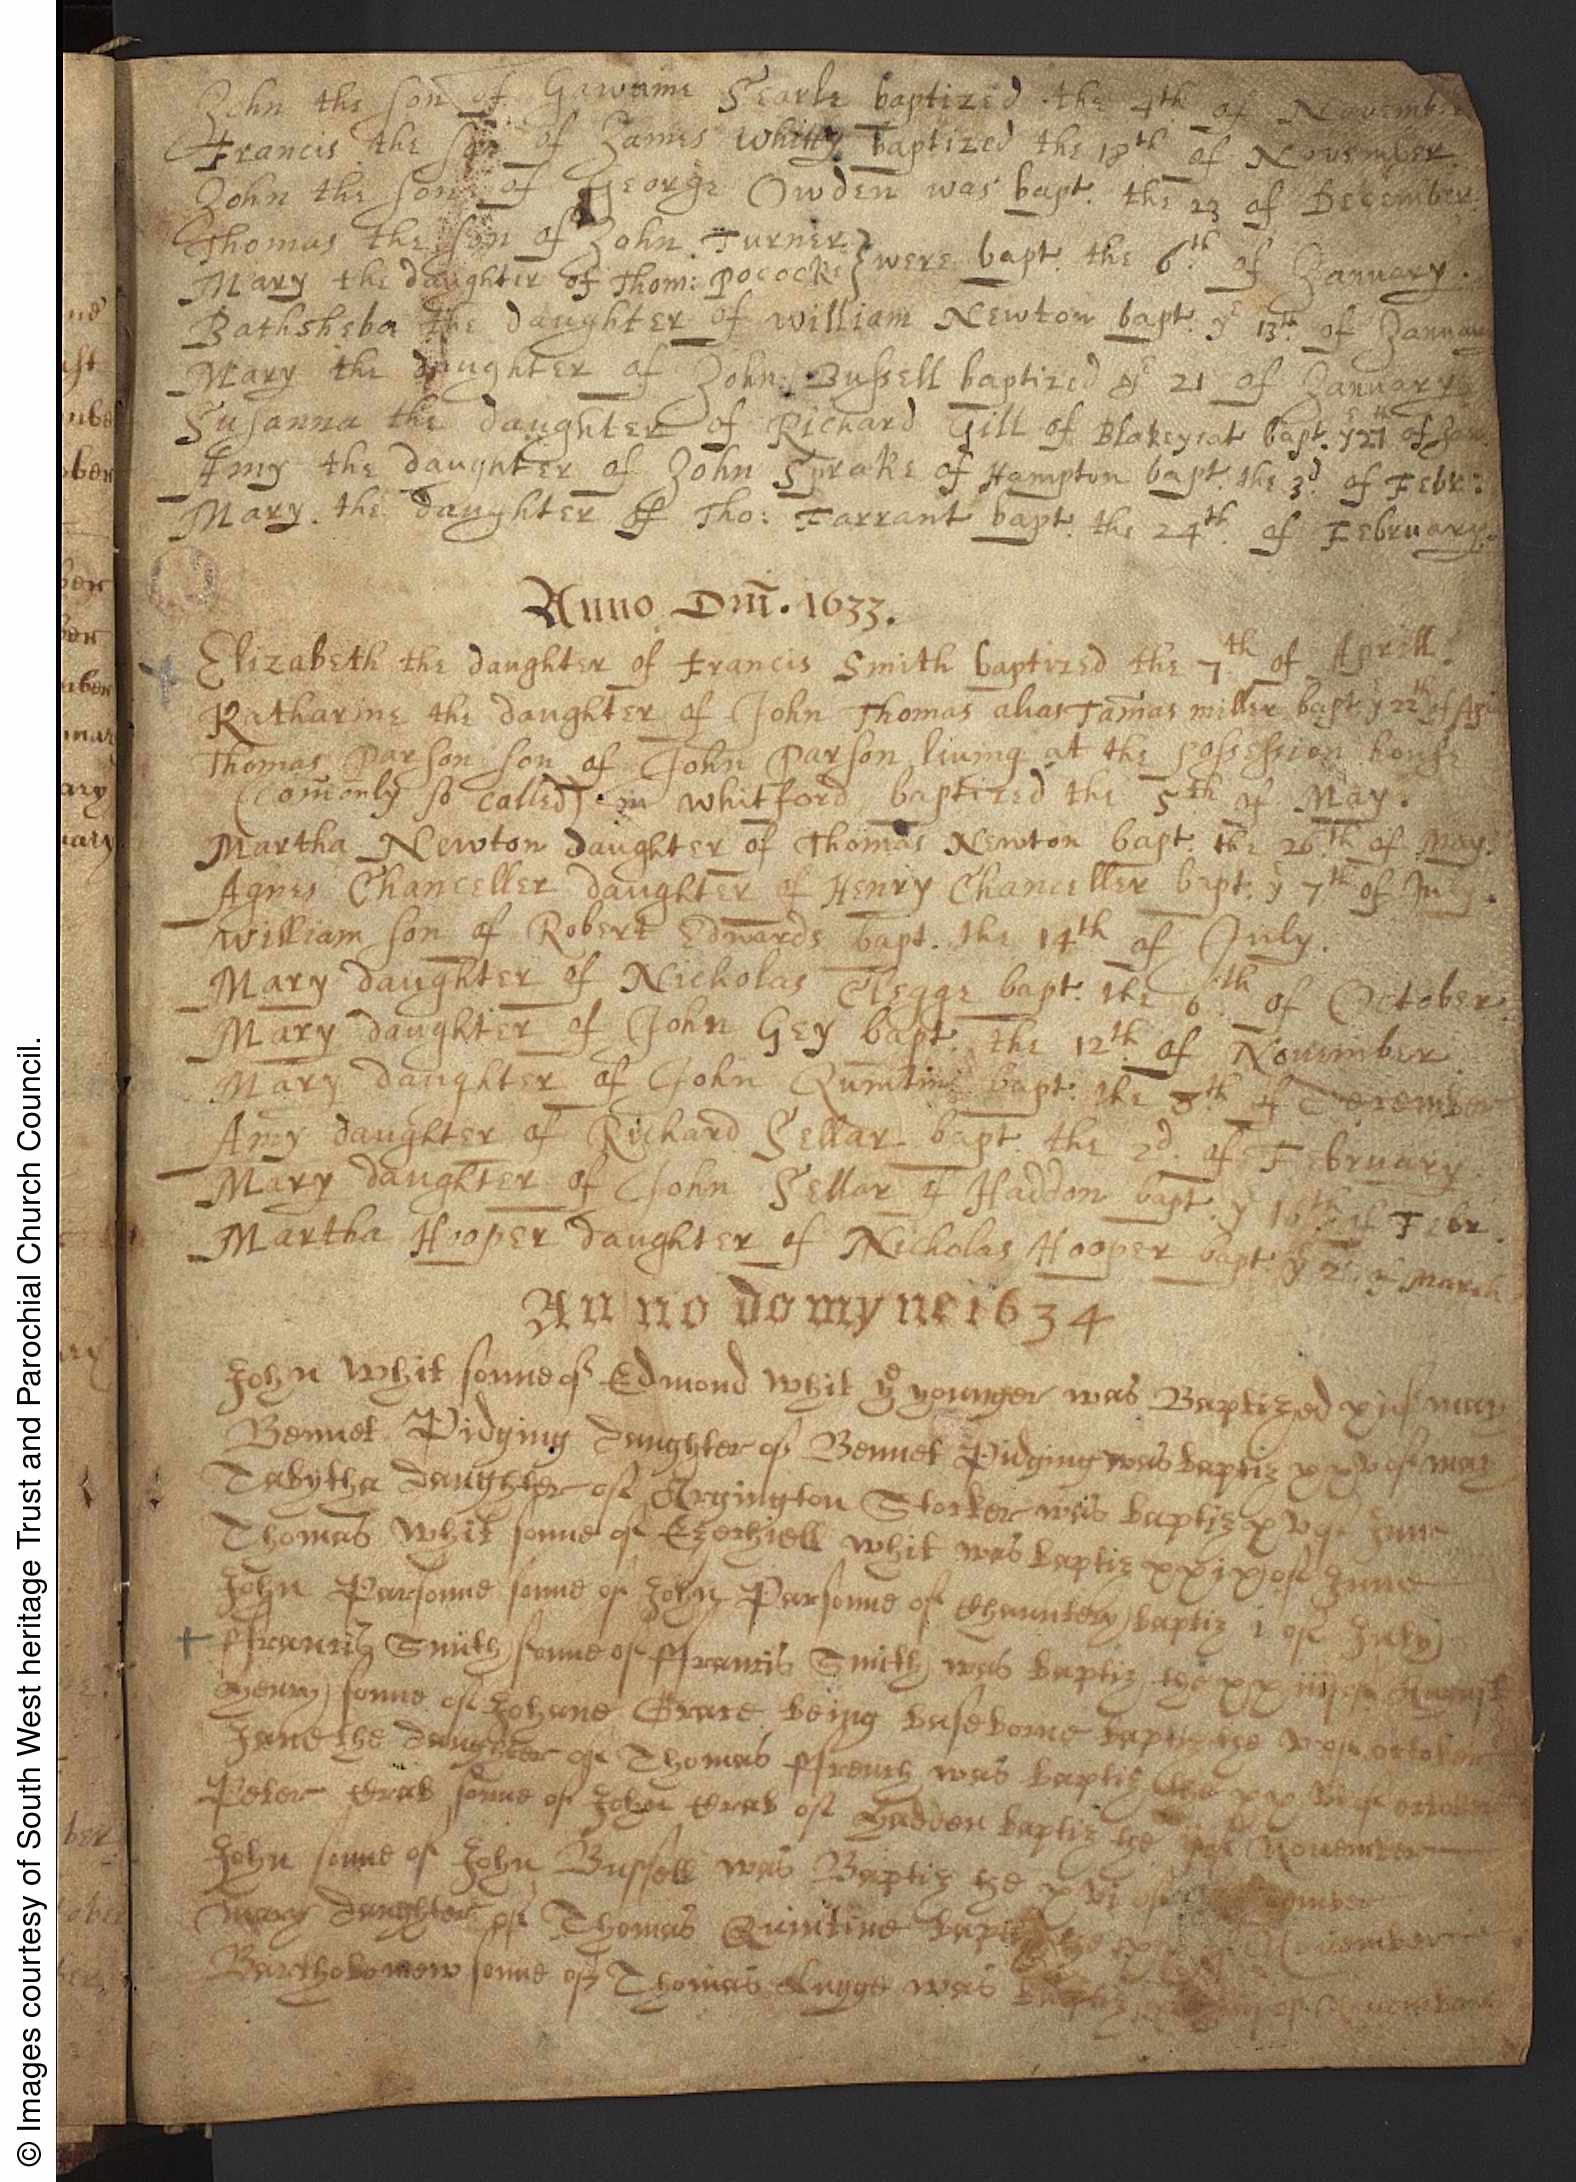 John the son of Gawaine Searle baptized the 4th of November
Francis the son of James Whitty baptized the 18th of November.
John the son of George Owden was bapt. the 23 of December.
Thomas the son of John Turner
Mary the daughter of Thom: Pococke } were bapt. the 6th of January.
Bathsheba the daughter of william Newton bapt. ye 13th of January
Mary the daughter of John Bussell baptized ye 21 of January
Susanna the daughter of Richard Gill of bapt. ye 27 of Jan:
Amy the daughter of John Sprake of Hampton bapt. the 3d. of Febr:
Mary the daughter of Tho: Farrant bapt. the 24th of February.
Anno Dm̄. 1633.
Elizabeth the daughter of Francis Smith baptized the 7th of Aprill.
Katharine the daughter of John Thomas alias miller bapt. ye 22th of Apr
Thomas Parson son of John Parson living at the possession house
(Com̄only so called) in whitford baptized the 5th of May.
Martha Newton daughter of Thomas Newton bapt. the 26th of May.
Agnes Chanceller daughter of Henry Chanceller bapt. ye 7th of July.
William son of Robert Edwards bapt. the 14th of July.
Mary daughter of Nicholas Clegge bapt. the 6th of October.
Mary daughter of John Gey bapt. the 12th of November
Mary daughter of John bapt. the 8th of December
Amy daughter of Richard Sellar bapt. the 2d. of February.
Mary daughter of John Sellar of Haddon bapt. ye of Febr.
Martha Hooper daughter of Nicholas Hooper bapt. ye 2 of March
Anno domyne 1634
John Whit sonne of Edmond Whit ye younger was Baptized of may
Bennet Pidging daughter of Bennet Pidging was baptiz xxv of may
Tabytha daughter of Storker was baptiz xv of June
Thomas Whit sonne of Ezechiell Whit was baptiz xxix of June
John Parsonne sonne of John Parsonne of Chauntery baptiz i of July
ffrancis Smith sonne of ffrancis Smith was baptiz the xxiiii of August
Henry sonne of Johane Grace being baseborne baptiz the v of october
Jane the daughter of Thomas ffrench was baptiz the xxvi of october
Peter Crab sonne of John Crab of Hadden baptiz the of November
John sonne of John Bussell was Baptiz the xvi of
Mary daughter of Thomas Quintine bapti the of November
Bartholomew sonne of Thomas was baptiz of
© Images courtesy of South West heritage Trust and Parochial Church Council.